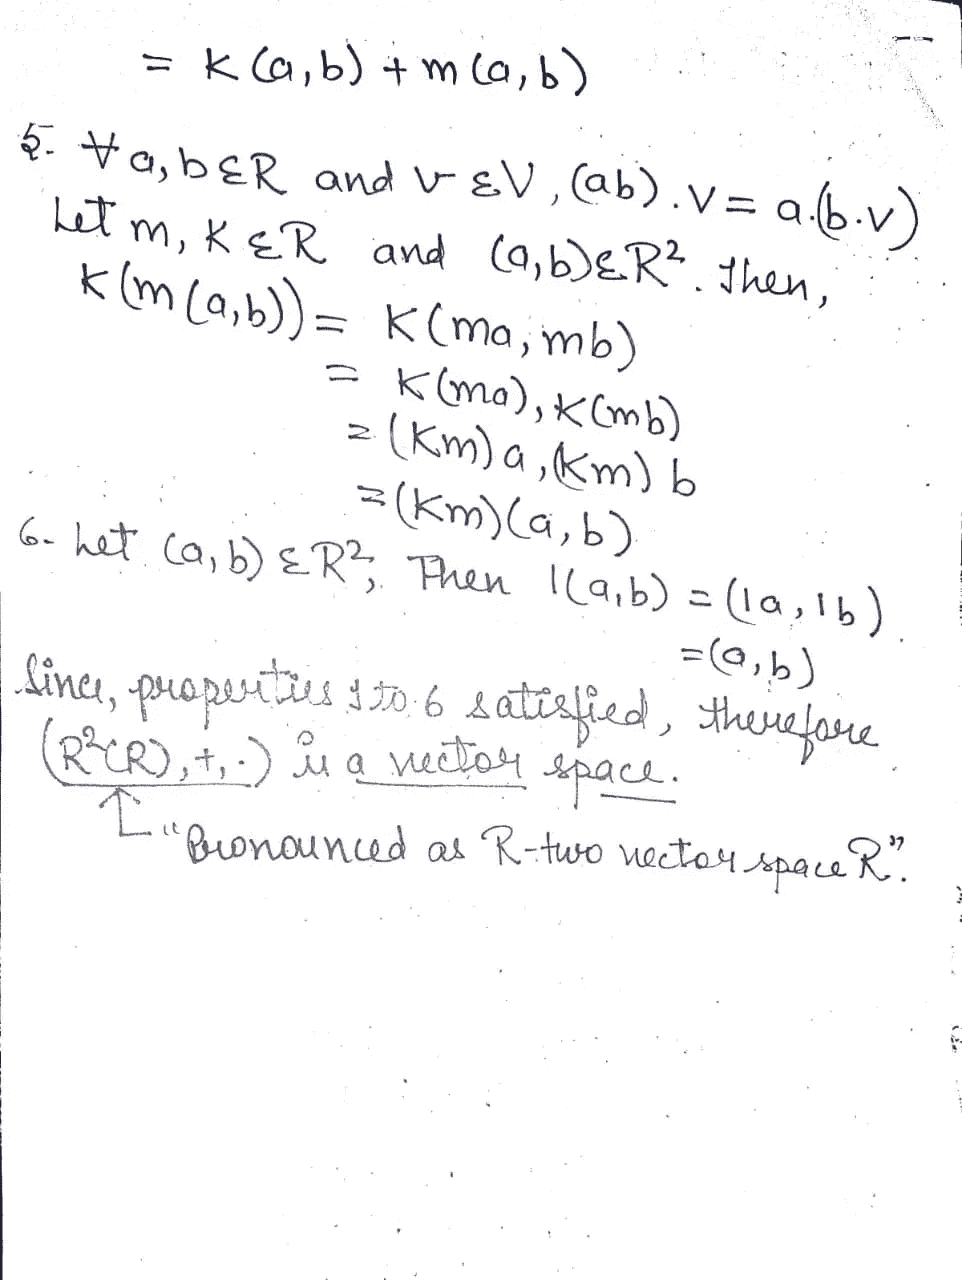 = K (a, b) + m (a, b)
5. ∀ a, b ɛ R and v ɛ V, (ab) . v = a.(b.v)
Let m, K ɛ R and (a, b) ɛ R². Then,
K (m (a, b)) = K (ma, mb)
= K (ma), K (mb)
= (Km) a, (Km) b
= (Km) (a, b)
6- Let (a, b) ɛ R², Then 1(a, b) = (1a, 1b)
= (a, b)
Since, properties 1 to 6 satisfied, therefore
(R²(R), +, .) is a vector space.
"Pronounced as R-two vector space R".